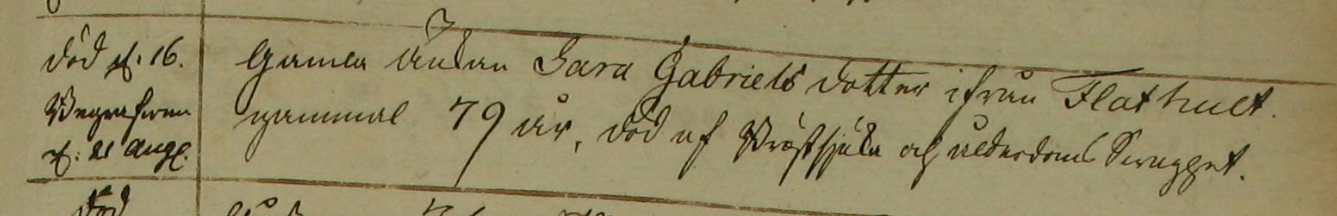 död d. 16.
Begrafven
d. 21 Aug.
Gamla Änkan Sara Gabriels dotter ifrån Flathult.
gammal 79 år, död af Bröstsjuka och ålderdoms Swaghet.
Död